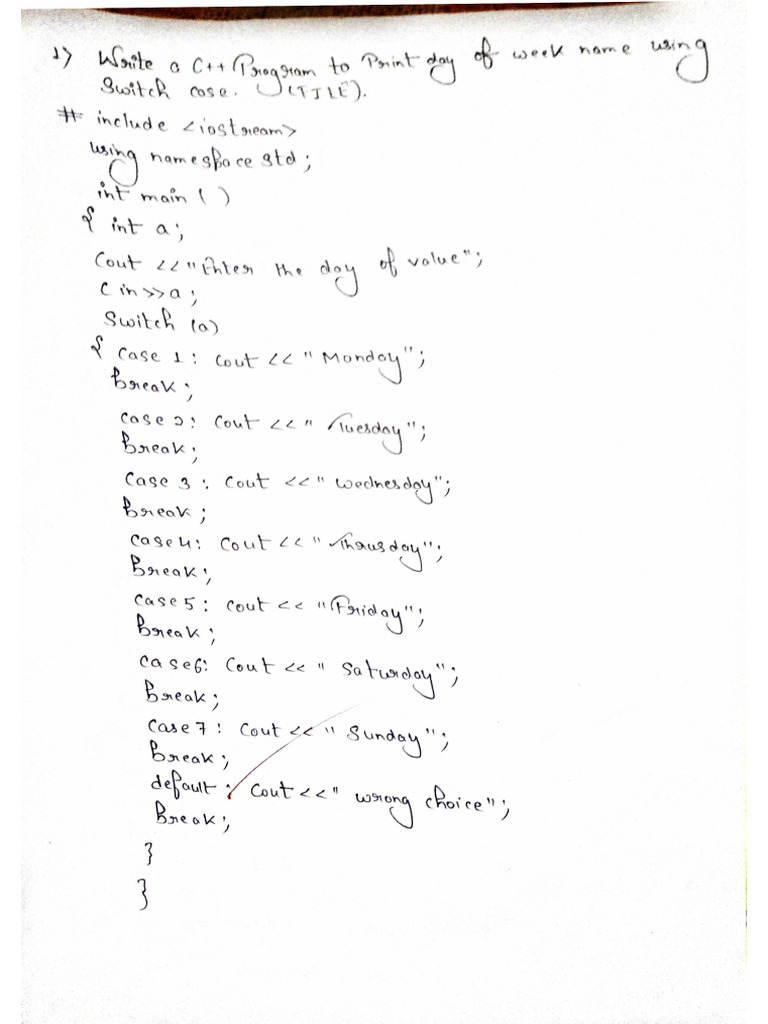 1) Write a C++ Program to Print day of week name using
Switch case. (TJLE).
# include <iostream>
using namespace std;
int main ( )
{ int a;
Cout <<"Enter the day of value";
Cin>>a;
Switch (a)
{ Case 1: Cout << "Monday";
Break;
Case 2: Cout << " Tuesday";
Break;
Case 3 : Cout <<" Wednesday";
Break;
Case 4: Cout << " Thrusday";
Break;
Case 5 : Cout << "Friday";
Break;
Case6: Cout << " Saturday";
Break;
Case 7 : Cout << " Sunday";
Break;
default : Cout <<" wrong choice";
Break;
}
}